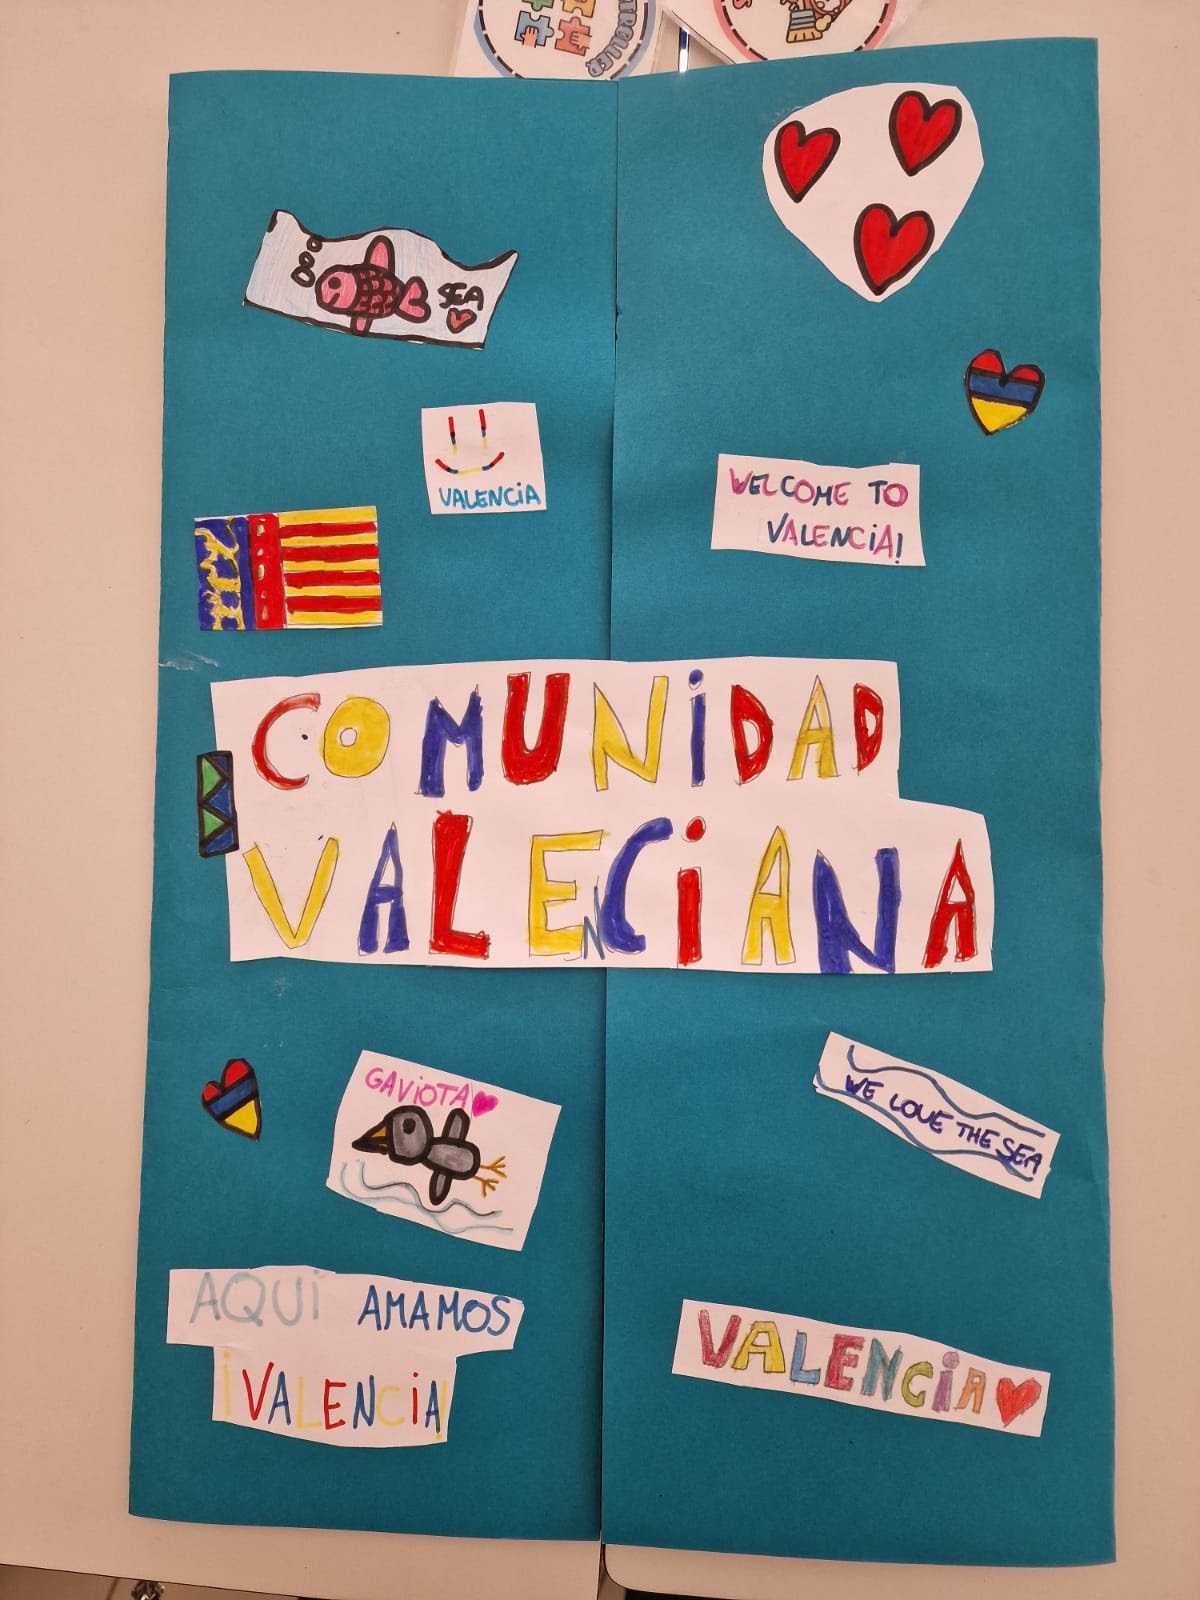 TROLLER
DOO
SEA
VALENCiA
WELCOME TO
VALENCiA!
COMUNiDAD
VALENCiANA
GAViOTA
WE LOVE THE SEA
AQUÍ AMAMOS
¡VALENCiA!
VALENCiA